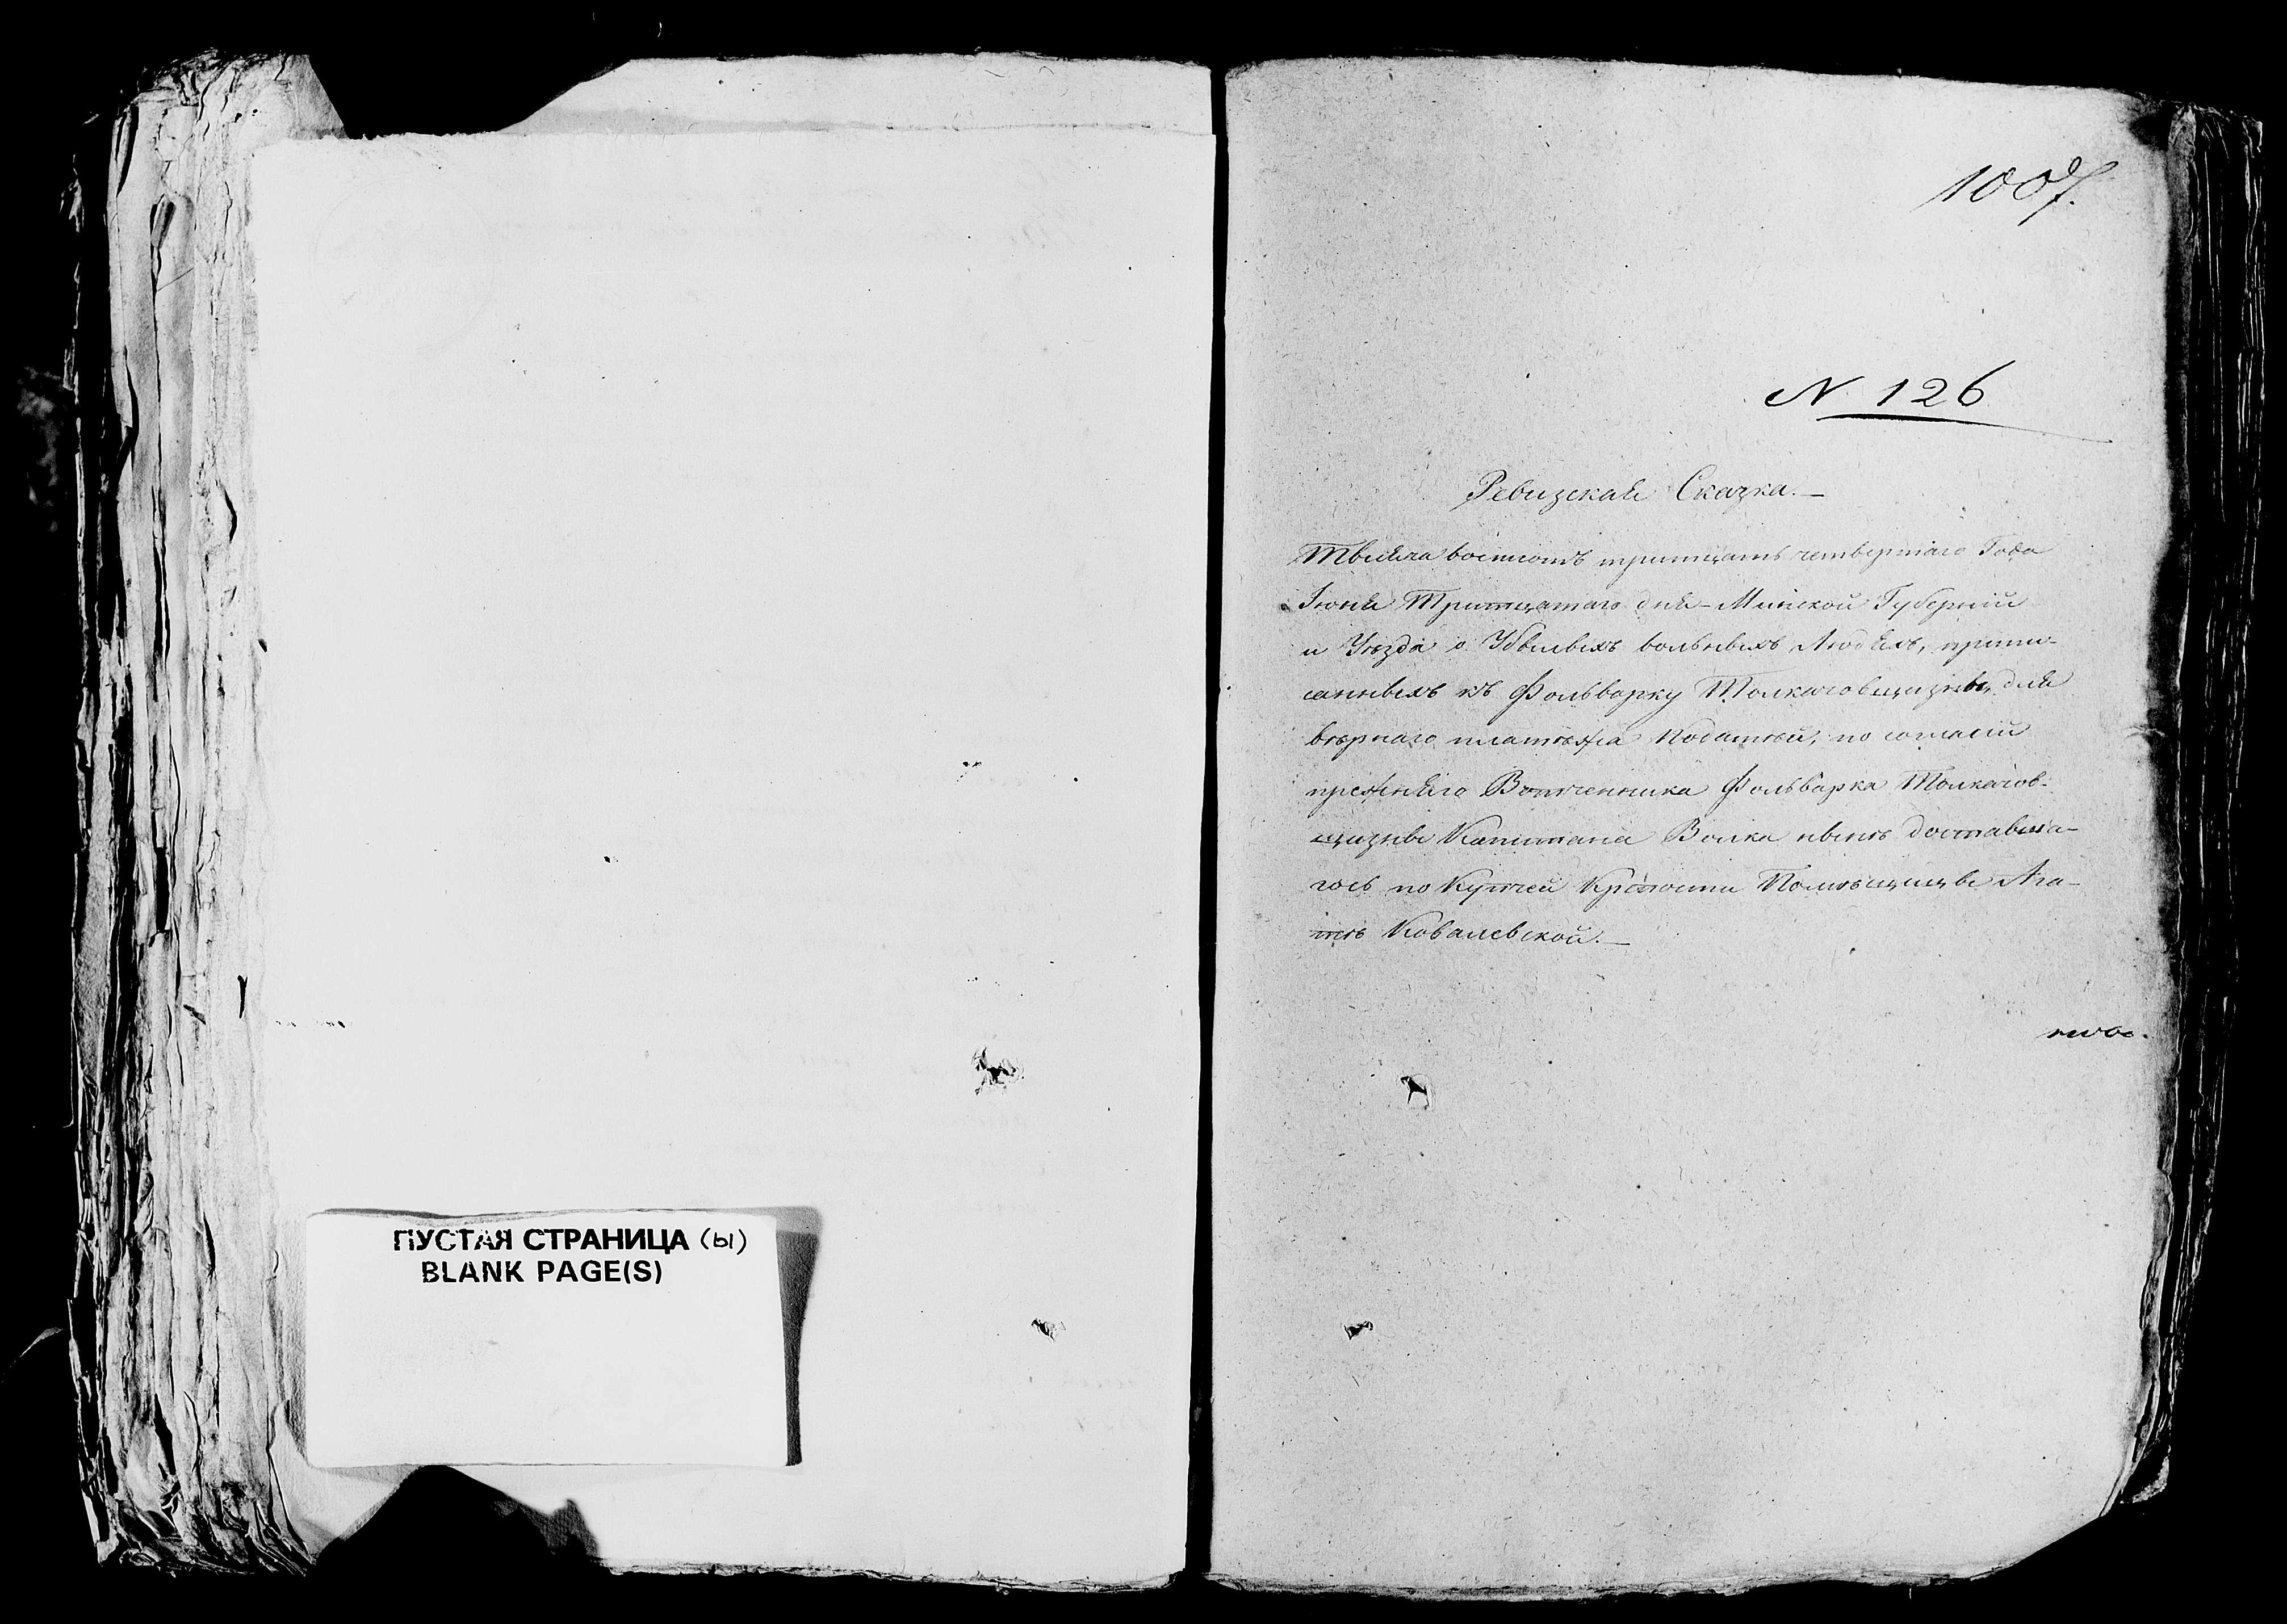 ПУСТАЯ СТРАНИЦА (ы)
BLANK PAGE(S)
1007.
N 126
Ревизская Сказка.—
Тысяча восмсотъ тритцать четвертаго Года
Іюня Тритцатаго дня – Минской Губерніи
и Уѣзда о Убылыхъ вольныхъ Людяхъ, припи-
санныхъ къ Фольварку Толкачовщизны, для
вѣрнаго платѣжа Податѣй, по согласіи
прежняго Вотченника Фольварка Толкачов-
щизны Капитана Волка нынѣ доставша-
гось по Купчей Крѣпости Помѣщицы Ага-
тѣ Ковалевской.—